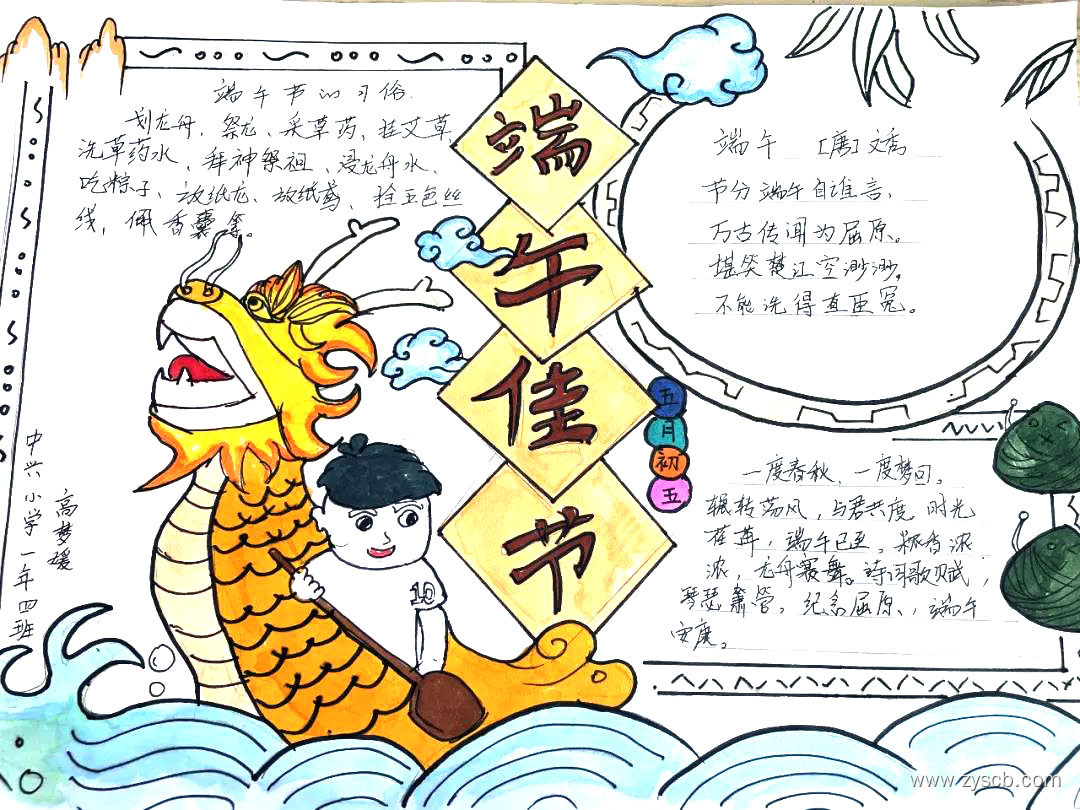 端午节的习俗.
划龙舟、祭龙、采草药、挂艾草,
洗草药水、拜神祭祖、浸龙舟水、
吃粽子、放纸龙、放纸鸢、拴五色丝
线, 佩香囊等。
端
午
佳
节
五
月
初
五
端午 [唐]文秀
节分端午自谁言,
万古传闻为屈原。
堪笑楚江空渺渺,
不能洗得直臣冤。
一度春秋, 一度梦回。
辗转荡风, 与君共度。时光
荏苒, 端午已至。粽香浓
浓, 龙舟裹舞。诗词歌赋,
琴瑟萧管。纪念屈原, 端午
安康。
10
中兴小学一年四班
高梦媛
www.zyscb.com